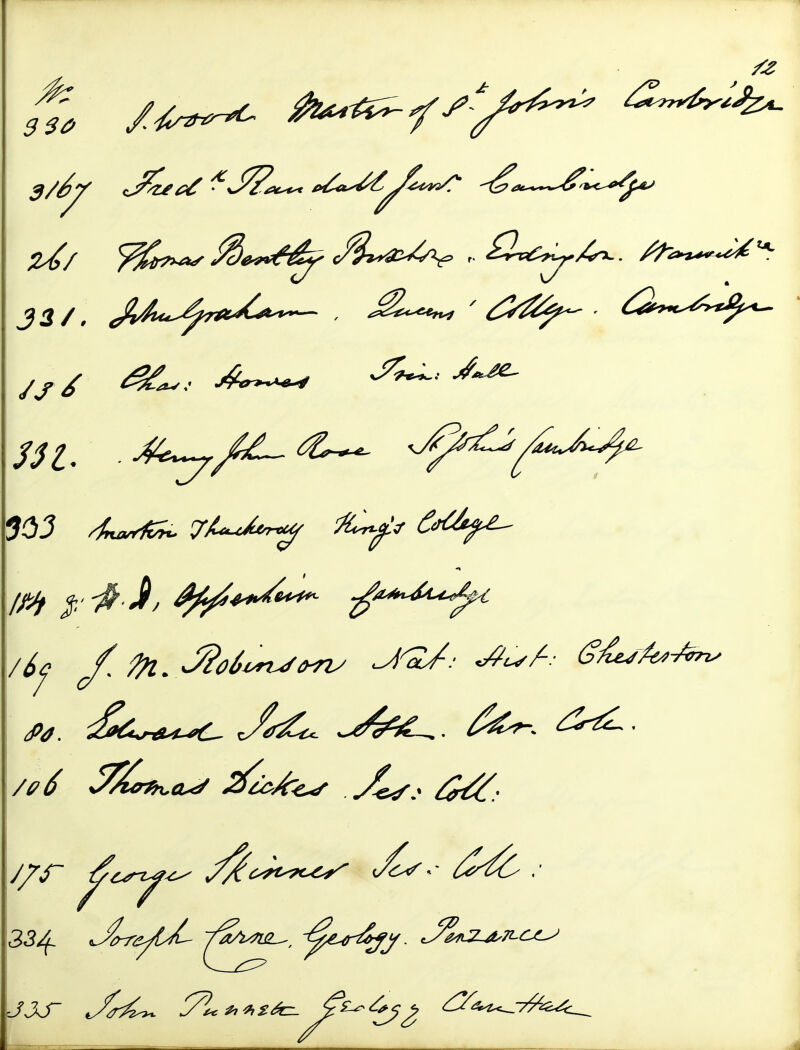 12
No
330 J. Wood Master of St. John's Cambridge
3167 Fredk. Randall Junr. Cambridge
261 Thomas Bentley Buxton. Erdington. Warwick
331. John Graham. Queens' College. Cambridge
136 Chas: Howes Trin: Hall
332. Henry John Rose St John's Cambridge
333 Martin Thackeray King's College
184 D, Oppenheim Cambridge
169 J. M. Robinson Nat: Hist: Chesterton
80. Edward John Ash. Chr. Coll.
106 Thomas Dickes Jes: Coll:
175 George Skinner Jes: Coll:
334 Joseph Carne. Geology. Penzance
335 John Punnett Geology Clare Hall